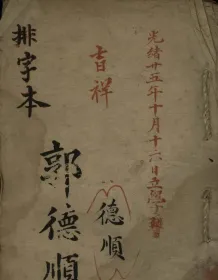 光緒廿五年十月十六日立
吉祥
德順
排字本
郭德順